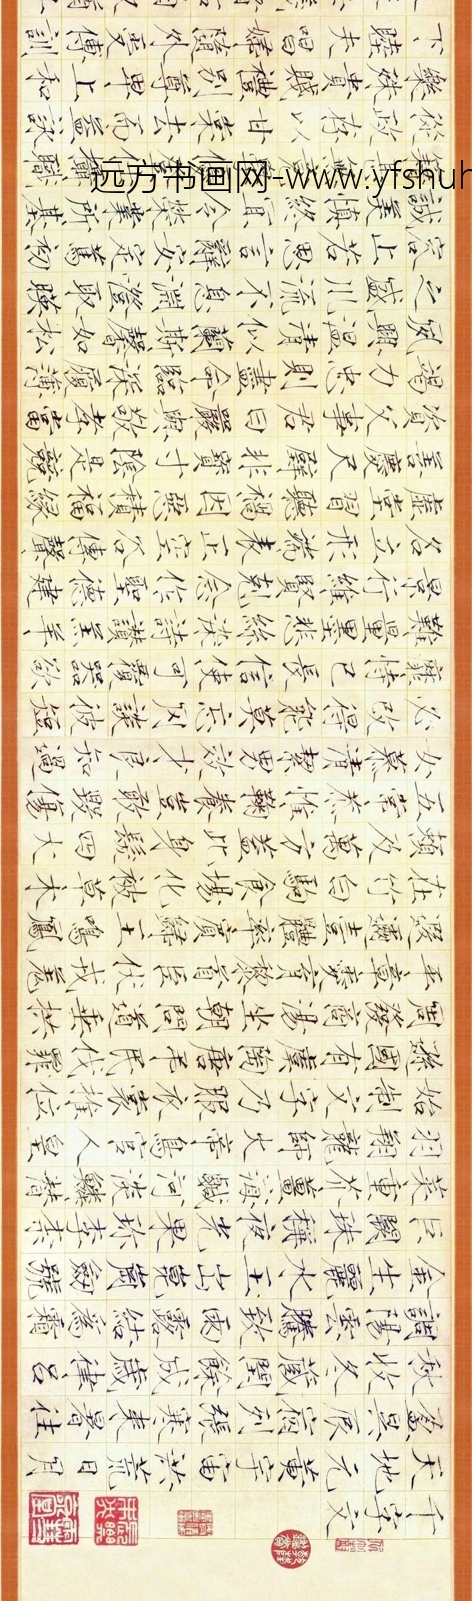 千字文
天地元黃宇宙洪荒日月
盈昃辰宿列張寒來暑往
秋收冬藏閏餘成歲律呂
調陽雲騰致雨露結為霜
金生麗水玉出崑岡劍號
巨闕珠稱夜光果珍李柰
菜重芥薑海鹹河淡鱗潛
羽翔龍師火帝鳥官人皇
始制文字乃服衣裳推位
遜國有虞陶唐弔民伐罪
周發商湯坐朝問道垂拱
平章愛育黎首臣伏戎羌
遐邇壹體率賓歸王鳴鳳
在竹白駒食場化被草木
賴及萬方蓋此身髮四大
五常恭惟鞠養豈敢毀傷
女慕清潔男效才良知過
必改得能莫忘罔談彼短
靡恃己長信使可覆器欲
難量墨悲絲染詩讚羔羊
景行維賢克念作聖德建
名立形端表正空谷傳聲
虛堂習聽禍因惡積福緣
善慶尺璧非寶寸陰是競
資父事君曰嚴與敬孝當
竭力忠則盡命臨深履薄
夙興溫清似蘭斯馨如松
之盛川流不息淵澄取暎
容止若思言辭安定篤初
誠美慎終宜令榮業所基
職
從政存以甘棠去而益詠
樂殊貴賤禮別尊卑上和
下睦夫唱婦隨外受傅訓
远方书画网-www.yfshuh